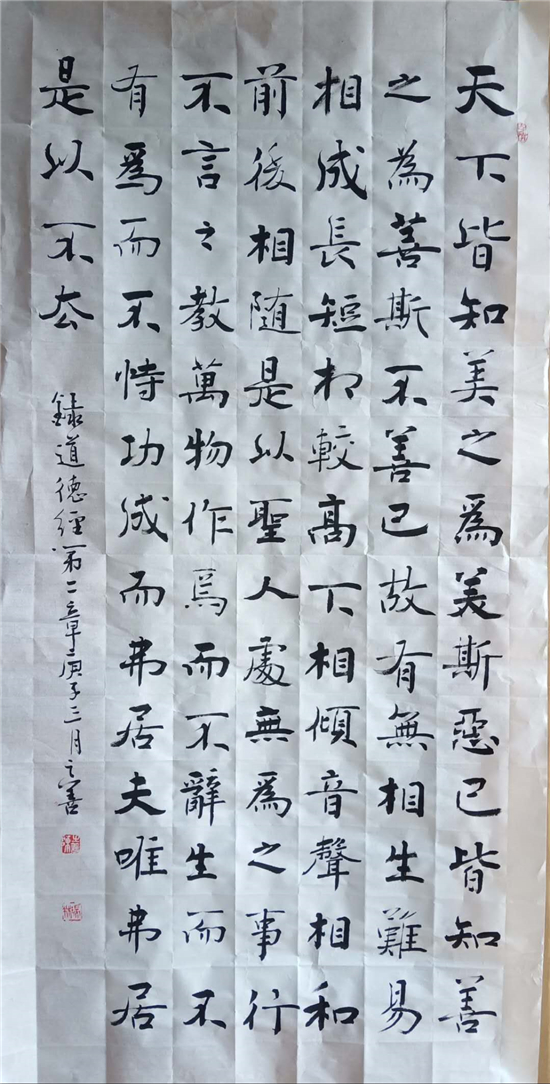 天下皆知美之爲美斯惡已皆知善
之為善斯不善已故有無相生難易
相成長短相較高下相傾音聲相和
前後相隨是以聖人處無爲之事行
不言之教萬物作焉而不辭生而不
有爲而不恃功成而弗居夫唯弗居
是以不去
録道德經第二章庚子三月善